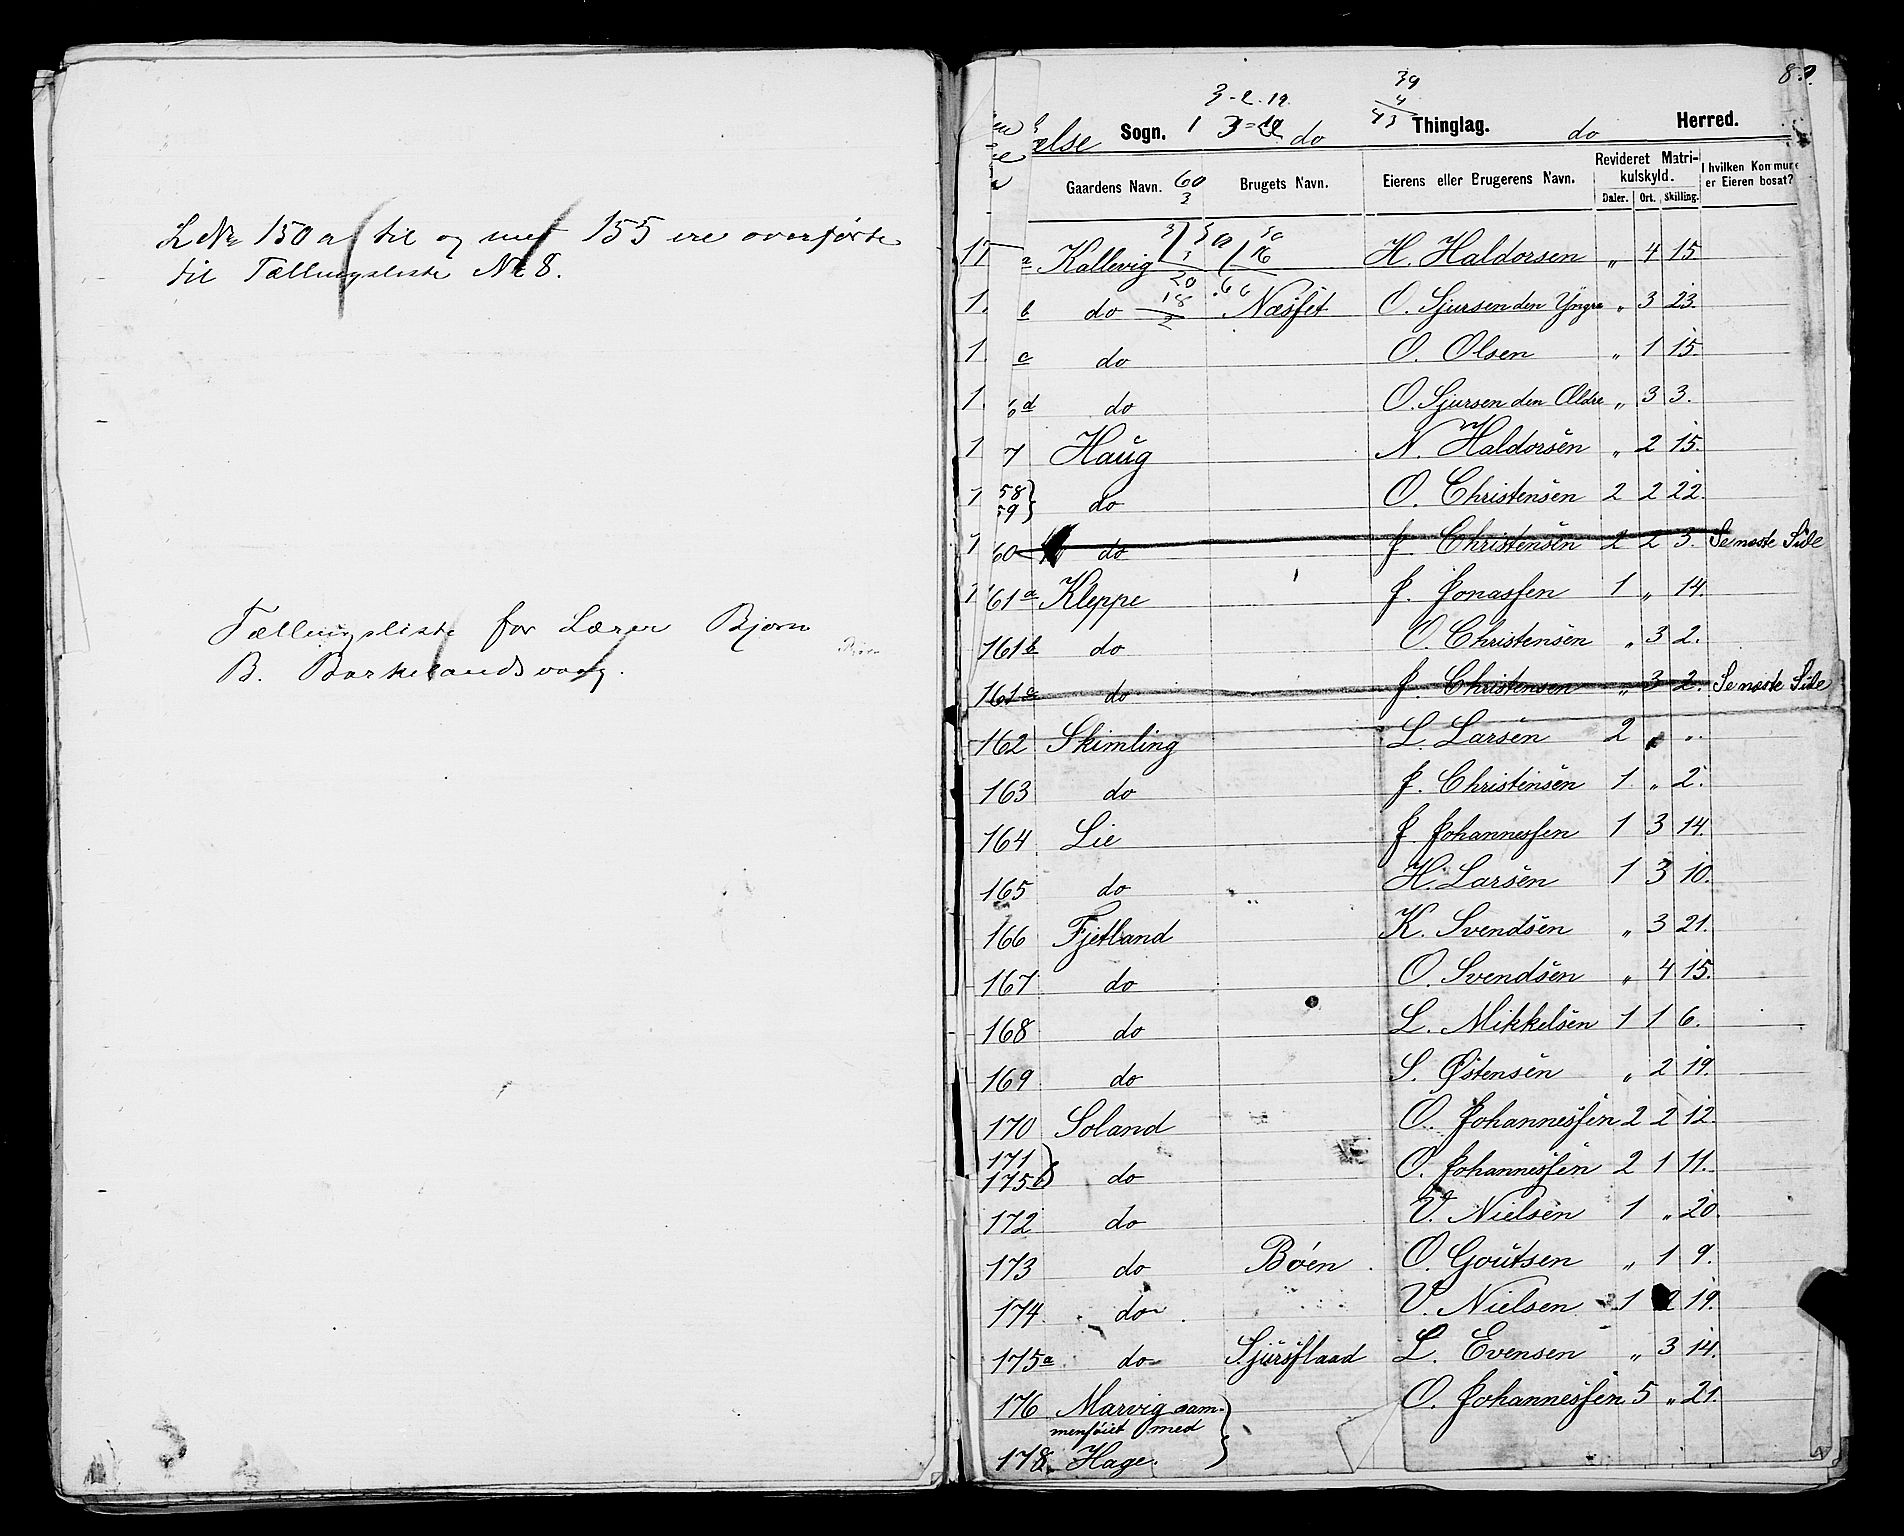 L Nr 150 a til og med 155 ere overførte
til Tællingsliste Nr 8.
Tællingsliste for Lærer Bjørn
B. Barkelandsvaag.
3-2.19.
39
4
43
else Sogn. 1 do Thinglag. do Herred.
Gaardens Navn. 60 3 Brugets Navn. Eierens eller Brugerens Navn. Revideret Matrikulskyld. Daler. Ort. Skilling. I hvilken Kommune er Eieren bosat?
a Kallevig H. Haldorsen „ 4 15.
b do Næsset O. Sjursen den Yngre „ 3 23.
c do O. Olsen „ 1 15.
d do O. Sjursen den Ældre „ 3 3.
7 Haug N. Haldorsen „ 2 15.
58 59 } do O. Christensen 2 2 22.
60 do J. Christensen 2 2 3. Se neste Side
161a Kleppe J. Jonassen 1 „ 14.
161b do O. Christensen „ 3 2.
161c do J. Christensen „ 3 2. Se neste Side
162 Skimling L. Larsen 2 „ „
163 do J. Christensen 1. „ 2.
164 Lie J. Johannessen 1 3 14.
165 do H. Larsen 1 3 10.
166 Fjetland K. Svendsen „ 3 21.
167 do O. Svendsen „ 4 15.
168 do L. Mikkelsen 1 1 6.
169 do S. Østensen „ 2 19.
170 Soland O. Johannessen 2 2 12.
171 175b } do O. Johannessen 2 1 11.
172 do V. Nielsen 1 „ 20.
173 do Bøen O. Goutsen „ 1 9.
174 do V. Nielsen 1 2 19.
175a do Sjursflaad L. Evensen „ 3 14.
176 Marvig sam- O. Johannessen 5 „ 21.
menføiet med
178 Hage.